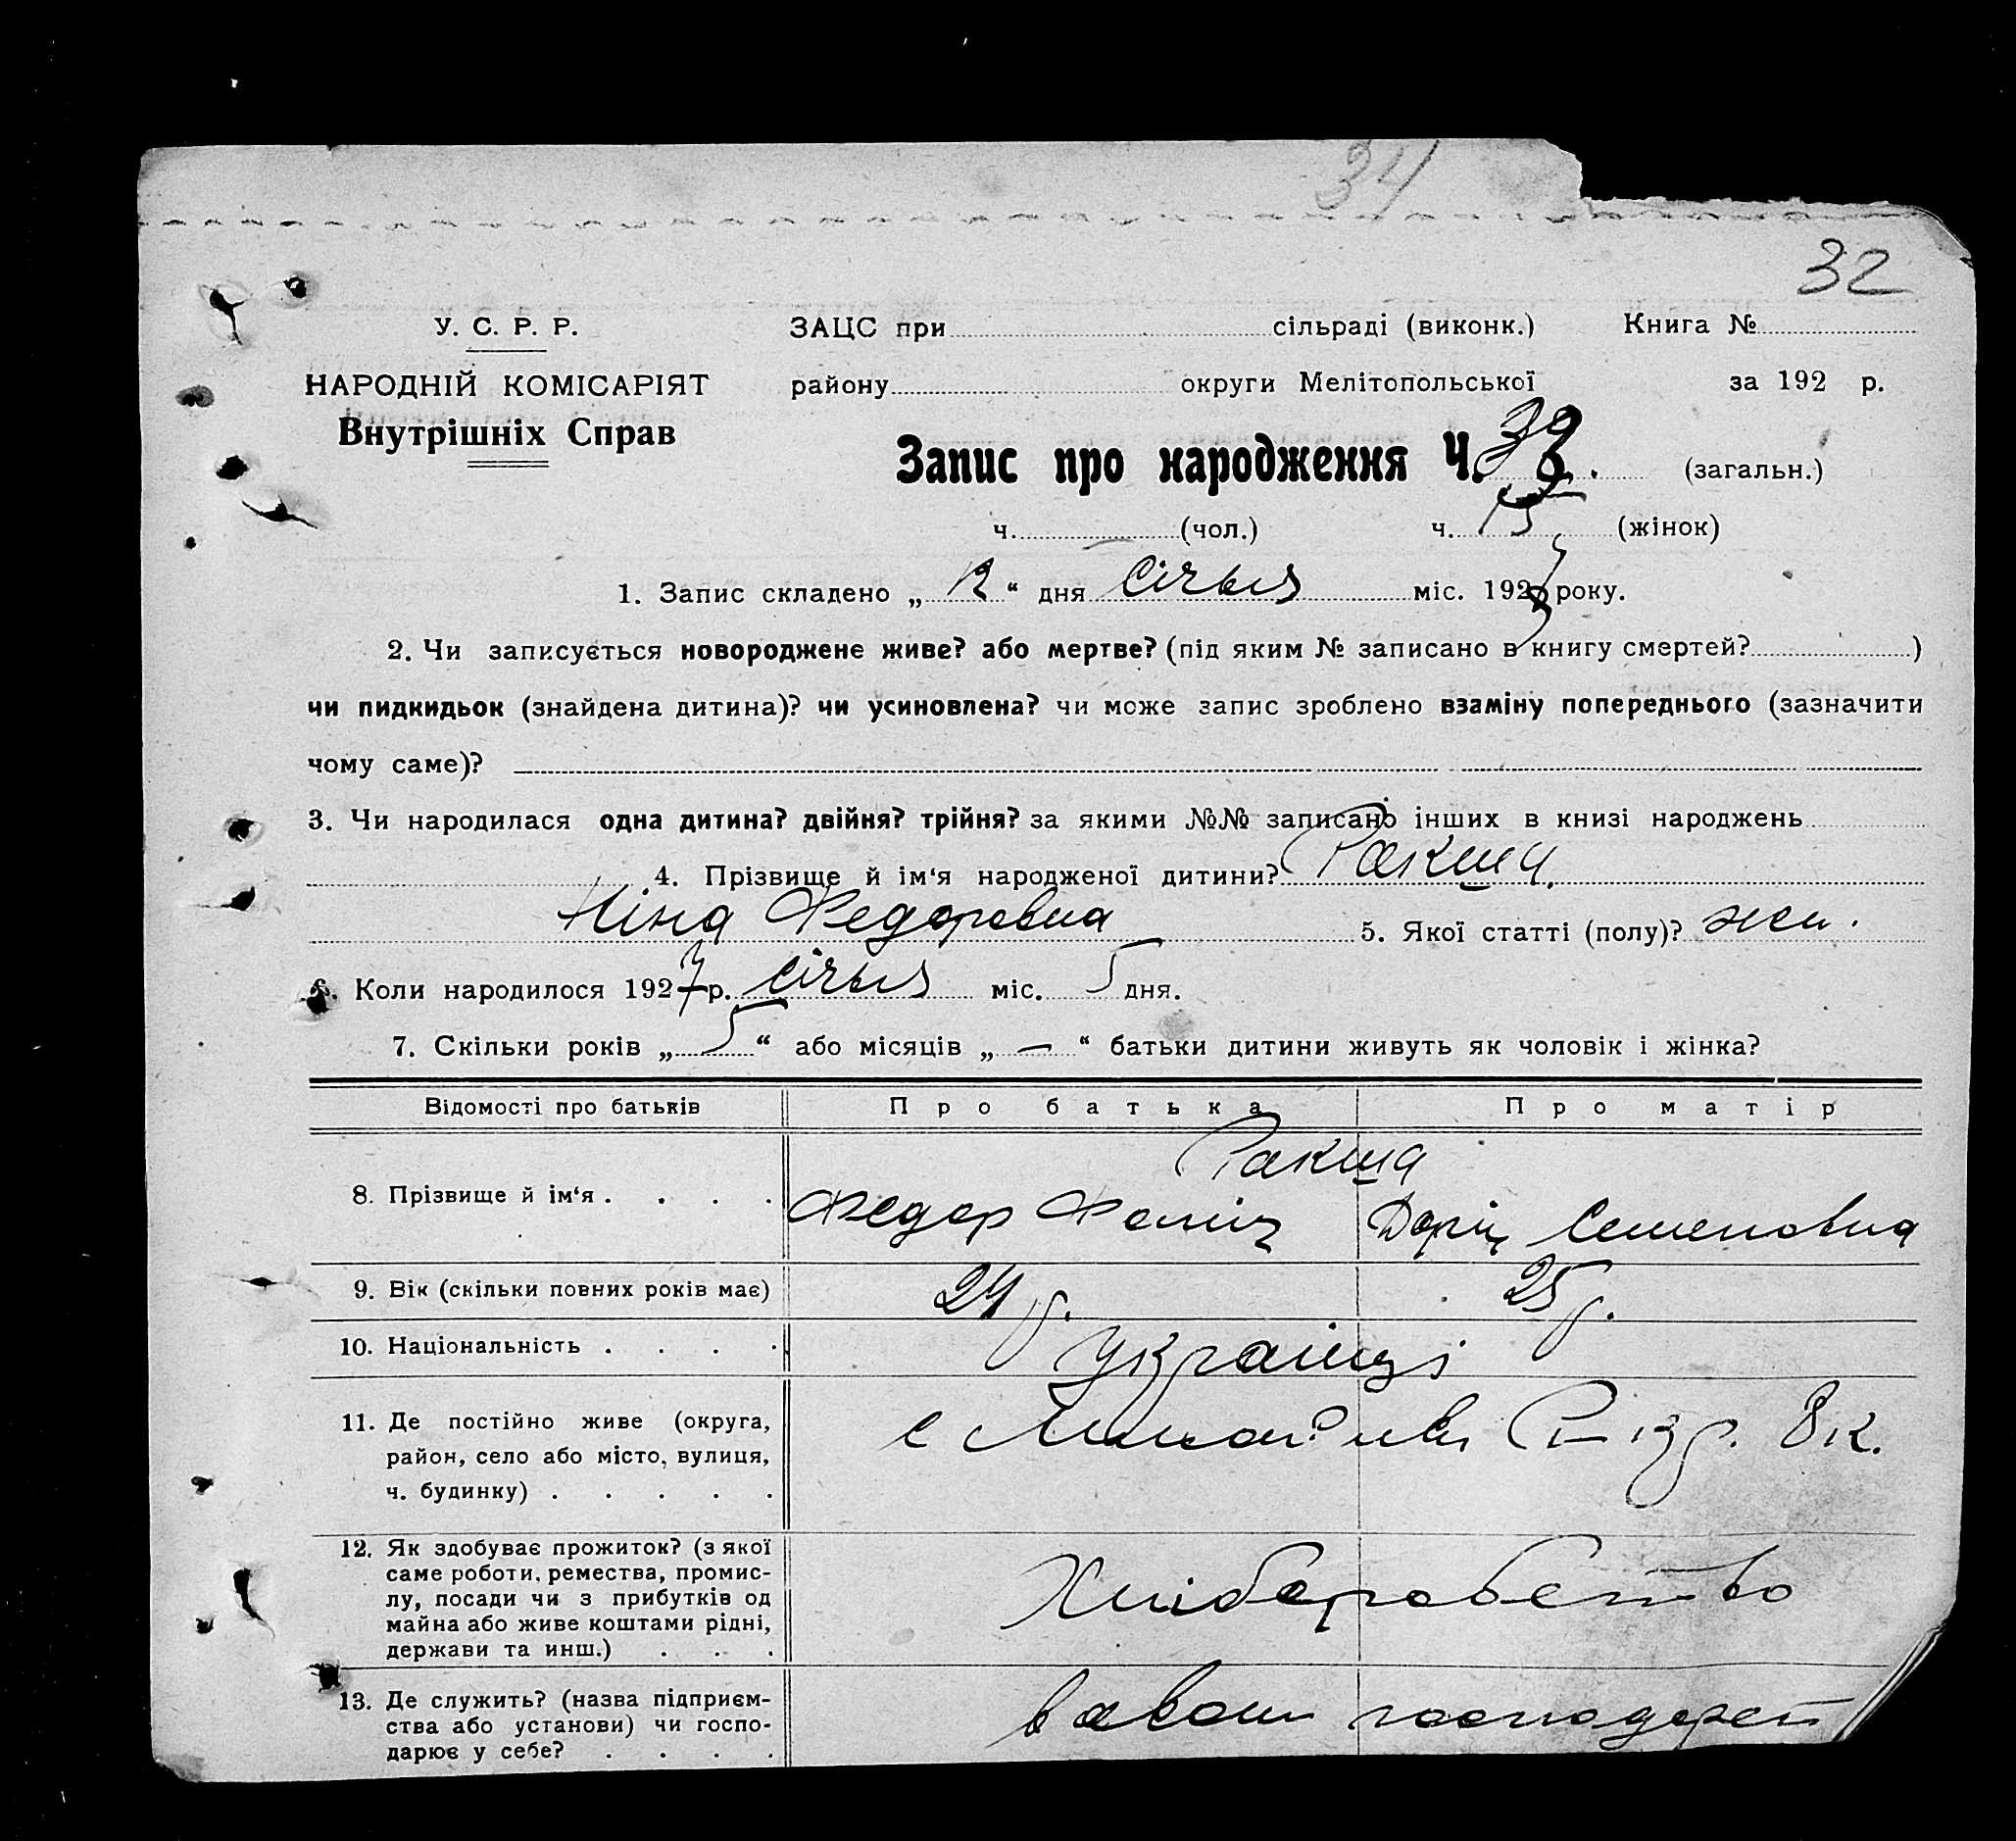 34
32
У. С. Р. Р.
ЗАЦС при сільраді (виконк.) Книга №
НАРОДНІЙ КОМІСАРІЯТ
району округи Мелітопольської за 192 р.
Внутрішніх Справ
Запис про народження Ч. 32. (загальн.)
ч. (чол.) ч. 15 (жінок)
1. Запис складено „ 12 “ дня Січня міс. 1927 року.
2. Чи записується новороджене живе? або мертве? (під яким № записано в книгу смертей? )
чи пидкидьок (знайдена дитина)? чи усиновлена? чи може запис зроблено взаміну попереднього (зазначити
чому саме)?
3. Чи народилася одна дитина? двійня? трійня? за якими №№ записано інших в книзі народжень
4. Прізвище й ім‘я народженої дитини? Ракша
Ніна Федоровна 5. Якої статті (полу)? жен.
6. Коли народилося 1927 р. Січня міс. 5 дня.
7. Скільки років „ 5 “ або місяців „ — “ батьки дитини живуть як чоловік і жінка?
Відомості про батьків Про батька Про матір
Ракша
8. Прізвище й ім‘я . . . . Федор Дарія Семеновна
9. Вік (скільки повних років має) 24 р. 25 р.
10. Національність . . . . Українці
11. Де постійно живе (округа,
район, село або місто, вулиця,
ч. будинку) . . . . .
12. Як здобуває прожиток? (з якої
саме роботи, ремества, промис-
лу, посади чи з прибутків од
майна або живе коштами рідні,
держави та инш.) . . .
Хліборобство
13. Де служить? (назва підприєм-
ства або установи) чи госпо-
дарює у себе? . . . .
в свом господарст